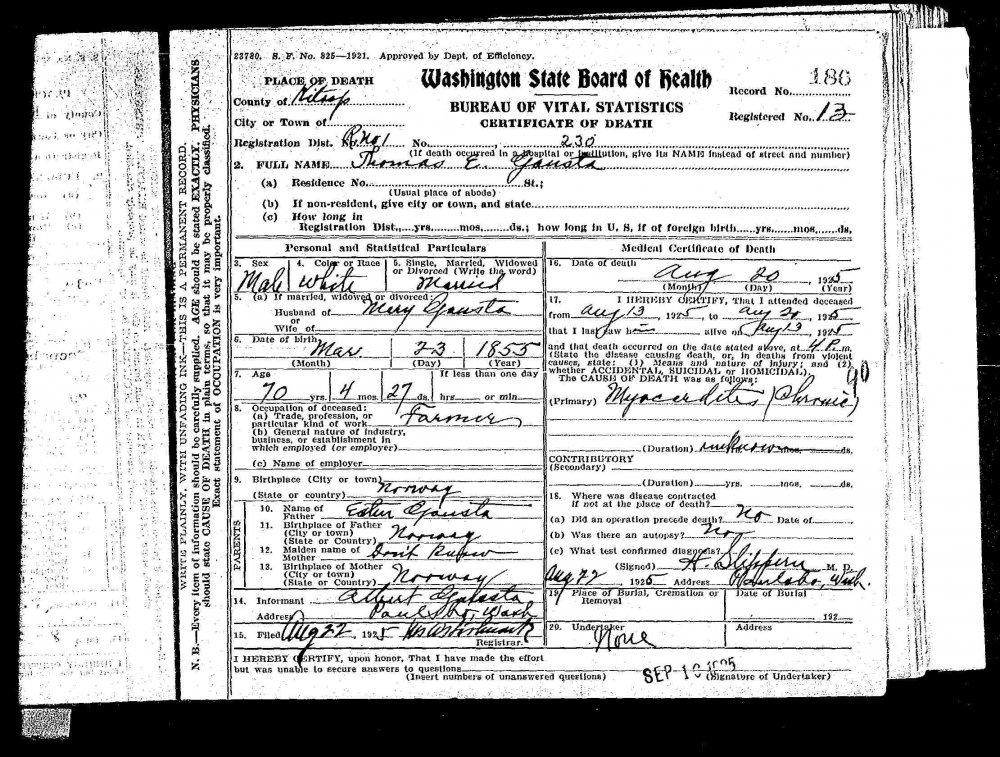 23780. S. F. No. 825—1921. Approved by Dept. of Efficiency.
PLACE OF DEATH
Washington State Board of Health
Record No. 186
County of Kitsap
BUREAU OF VITAL STATISTICS
Registered No. 13
City or Town of
CERTIFICATE OF DEATH
Registration Dist. No. R. No 1 No. 230
(If death occurred in a hospital or institution, give its NAME instead of street and number)
2. FULL NAME Thomas E. Gausta
(a) Residence No. St.;
(Usual place of abode)
(b) If non-resident, give city or town, and state
(c) How long in
Registration Dist., yrs. mos. ds.; how long in U. S, if of foreign birth yrs. mos. ds,
Personal and Statistical Particulars
3. Sex
Male
4. Color or Race
White
5. Single, Married, Widowed
or Divorced (Write the word)
Married
5. (a) If married, widowed or divorced:
Husband of Mary Gausta
or
Wife of
6. Date of birth
Mar 23 1855
(Month) (Day) (Year)
7. Age If less than one day
70 yrs. 4 mos. 27 ds. hrs. or min.
8. Occupation of deceased:
(a) Trade, profession, or
particular kind of work Farmer
(b) General nature of industry,
business, or establishment in
which employed (or employer)
(c) Name of employer
9. Birthplace (City or town)
(State or country) Norway
PARENTS
10. Name of
Father Gausta
11. Birthplace of Father
(City or town)
(State or Country) Norway
12. Maiden name of
Mother
13. Birthplace of Mother
(City or town)
(State or Country) Norway
14. Informant Albert Gausta
Address Paulsbo, Wash
15. Filed Aug 22, 1925
Registrar.
Medical Certificate of Death
16. Date of death
Aug 20, 1925
(Month) (Day) (Year)
17. I HEREBY CERTIFY, That I attended deceased
from Aug 13, 1925, to Aug 20, 1925
that I last saw h alive on Aug 19 1925
and that death occurred on the date stated above, at 4 P. m.
(State the disease causing death, or, in deaths from violent
causes, state: (1) Means and nature of injury; and (2)
whether ACCIDENTAL, SUICIDAL or HOMICIDAL).
The CAUSE OF DEATH was as follows: 90
(Primary) Myocarditis (Chronic)
(Duration) unknown mos. ds.
CONTRIBUTORY
(Secondary)
(Duration) yrs. mos. ds.
18. Where was disease contracted
if not at the place of death?
(a) Did an operation precede death? No Date of
(b) Was there an autopsy? No
(c) What test confirmed diagnosis?
(Signed) M. P.
Aug 22, 1925 Address Paulsbo, Wash.
19. Place of Burial, Cremation or
Removal
Date of Burial
192
20. Undertaker
None
Address
I HEREBY CERTIFY, upon honor, That I have made the effort
but was unable to secure answers to questions
(Insert numbers of unanswered questions)
SEP 10 1925
(Signature of Undertaker)
N. B.—Every item of information should be carefully supplied. AGE should be stated EXACTLY. PHYSICIANS
should state CAUSE OF DEATH in plain terms, so that it may be properly classified.
Exact statement of OCCUPATION is very important.
WRITE PLAINLY, WITH UNFADING INK—THIS IS A PERMANENT RECORD.